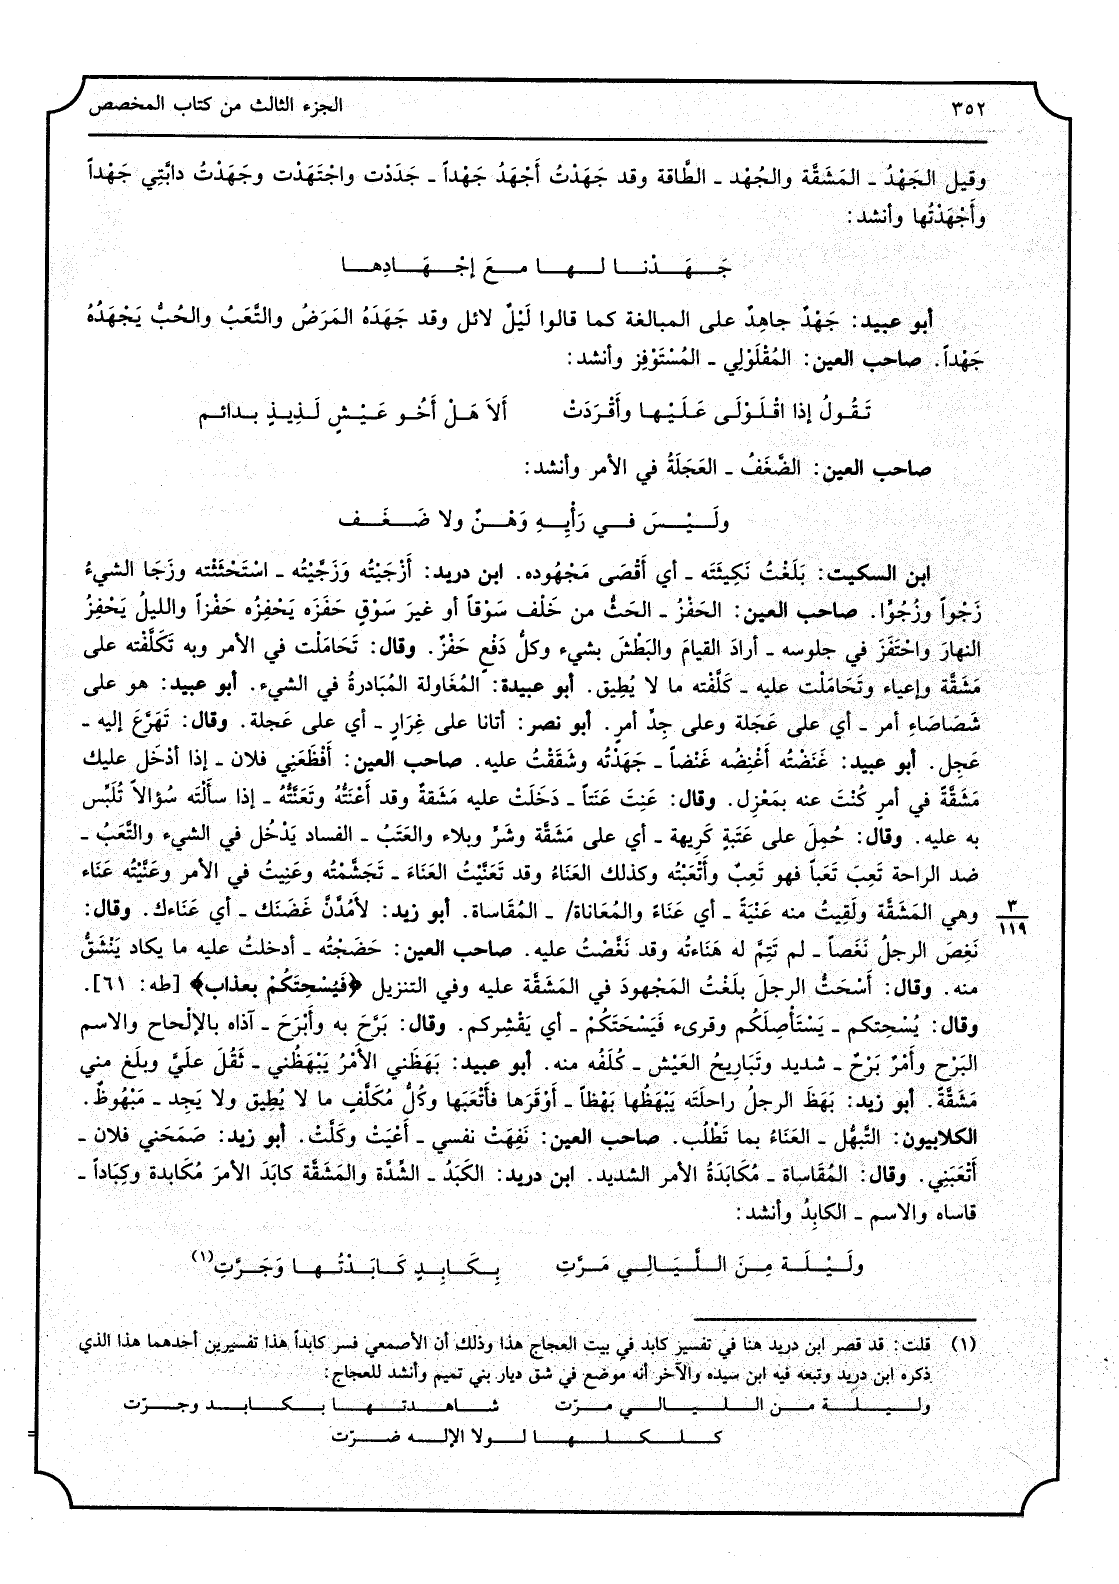 ٣٥٢
الجزء الثالث من كتاب المخصص
وقيل الجَهْدُ ـ المَشَقَّة والجُهْد ـ الطَّاقة وقد جَهَدْتُ أَجْهَدُ جَهْداً ـ جَدَدْت واجْتَهَدْت وجَهَدْتُ دابَّتِي جَهْداً
وأَجْهَدْتُها وأنشد:
جَــهَــدْنــا لــهــا مــعَ إجْــهَــادِهــا
أبو عبيد: جَهْدٌ جاهِدٌ على المبالغة كما قالوا لَيْلٌ لائل وقد جَهَدَهُ المَرَضُ والتَّعَبُ والحُبُّ يَجْهَدُهُ
جَهْداً. صاحب العين: المُقْلَوْلِي ـ المُسْتَوْفِز وأنشد:
تَـقُـولُ إذا اقْـلَـوْلَـى عَـلَـيْـهـا وأَقْـرَدَتْ أَلاَ هَـلْ أَخُـو عَـيْـشٍ لَـذِيـذٍ بـدائـم
صاحب العين: الضَّغَفُ ـ العَجَلَةُ في الأمر وأنشد:
ولَــيْــسَ فــي رَأْيِــهِ وَهْــنٌ ولا ضَــغَــف
ابن السكيت: بَلَغْتُ نَكِيثَتَه ـ أي أَقْصَى مَجْهُوده. ابن دريد: أَزْجَيْتُه وَزَجَّيْتُه ـ اسْتَحْثَثْته وزَجَا الشيءُ
زَجْواً وزُجُوًّا. صاحب العين: الحَفْزُ ـ الحَثُّ من خَلْف سَوْقاً أو غيرَ سَوْقٍ حَفَزَه يَحْفِزُه حَفْزاً والليلُ يَحْفِزُ
النهارَ واحْتَفَزَ في جلوسه ـ أرادَ القيامَ والبَطْشَ بشيء وكلُّ دَفْعٍ حَفْزٌ. وقال: تَحَامَلْت في الأمر وبه تَكَلَّفْته على
مَشقَّة وإعياء وتَحَامَلْت عليه ـ كَلَّفْته ما لا يُطِيق. أبو عبيدة: المُغَاولة المُبَادرةُ في الشيء. أبو عبيد: هو على
شَصَاصَاءِ أمر ـ أي على عَجَلة وعلى حِدِّ أمرٍ. أبو نصر: أتانا على غِرَارٍ ـ أي على عَجلة. وقال: تَهَرَّعَ إليه ـ
عَجِل. أبو عبيد: غَنَضْته أَغْنِضُه غَنْضاً ـ جَهَدْتُه وشَقَقْتُ عليه. صاحب العين: أَفْظَعَنِي فلان ـ إذا أدْخَل عليك
مَشقَّةً في أمرٍ كُنْتَ عنه بمَعْزِل. وقال: عَنِتَ عَنَتاً ـ دَخَلَتْ عليه مَشقةٌ وقد أَعْنَتُّهُ وتَعَنَّتُّهُ ـ إذا سألْتَه سُؤالاً تُلَبِّس
به عليه. وقال: حُمِلَ على عَتَبةٍ كَرِيهة ـ أي على مَشَقَّة وشَرٍّ وبلاء والعَتَبُ ـ الفساد يَدْخُل في الشيء والتَّعَبُ ـ
ضد الراحة تَعِبَ تَعَباً فهو تَعِبٌ وأَتْعَبْتُه وكذلك العَنَاءُ وقد تَعَنَّيْتُ العَنَاءَ ـ تَجَشَّمْتُه وعَنِيتُ في الأمر وعَنَّيْتُه عَنَاء
وهي المَشَقَّة ولَقِيتُ منه عَنْيَةً ـ أي عَنَاءً والمُعَاناة/ ـ المُقَاساة. أبو زيد: لأَمُدَّنَّ غَضَنَك ـ أي عَنَاءك. وقال:
٣
١١٩
نَغِصَ الرجلُ نَغَصاً ـ لم تَتِمَّ له هَنَاءتُه وقد نَغَّصْتُ عليه. صاحب العين: حَضَجْتُه ـ أدخلتُ عليه ما يكاد يَنْشَقُّ
منه. وقال: أَسْحَتُّ الرجلَ بلَغْتُ المَجْهودَ في المَشقَّة عليه وفي التنزيل ﴿فَيُسْحِتَكُمْ بعذاب﴾ [طه: ٦١].
وقال: يُسْحِتكم ـ يَسْتَأْصِلَكُم وقرىء فَيَسْحَتَكُمْ ـ أي يَقْشِركم. وقال: بَرَّحَ به وأَبْرَحَ ـ آذاه بالإِلْحاح والاسم
البَرْح وأَمْرٌ بَرْحٌ ـ شديد وتَبَارِيحُ العَيْش ـ كُلَفُه منه. أبو عبيد: بَهَظَني الأَمْرُ يَبْهَظُني ـ ثَقُلَ علَيَّ وبلَغ مني
مَشَقَّةً. أبو زيد: بَهَظَ الرجلُ راحلَته يَبْهَظُها بَهْظاً ـ أَوْقَرَها فأَتْعَبَها وكُلُّ مُكَلَّفٍ ما لا يُطِيق ولا يَجِد ـ مَبْهُوظٌ.
الكلابيون: التَّبهُّل ـ العَنَاءُ بما تَطْلُب. صاحب العين: نَفِهَتْ نفسي ـ أَعْيَتْ وكَلَّتْ. أبو زيد: صَمَحَني فلان ـ
أَتْعَبَنِي. وقال: المُقَاساة ـ مُكَابَدَةُ الأمر الشديد. ابن دريد: الكَبَدُ ـ الشِّدَّة والمَشَقَّة كابَدَ الأمرَ مُكَابدة وكِبَاداً ـ
قاساه والاسم ـ الكابِدُ وأنشد:
ولَــيْــلَــة مِــنَ الــلَّــيَــالِــي مَــرَّتِ بِــكَــابِــدٍ كَــابَــدْتُــهــا وَجَــرَّتِ(١)
(١) قلت: قد قصر ابن دريد هنا في تفسير كابد في بيت العجاج هذا وذلك أن الأصمعي فسر كابداً هذا تفسيرين أحدهما هذا الذي
ذكره ابن دريد وتبعه فيه ابن سيده والآخر أنه موضع في شق ديار بني تميم وأنشد للعجاج:
ولــيــلــة مــن الــلــيــالــي مــرّت شــاهــدتــهــا بــكــابــد وجــرّت
كــلــكــلــهــا لــولا الإلــه ضــرّت
=